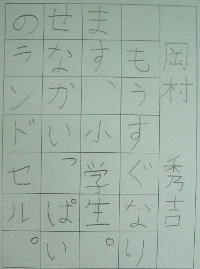 岡村 秀吉
もうすぐなり
ます、小学生。
せなかいっぱい
のランドセル。